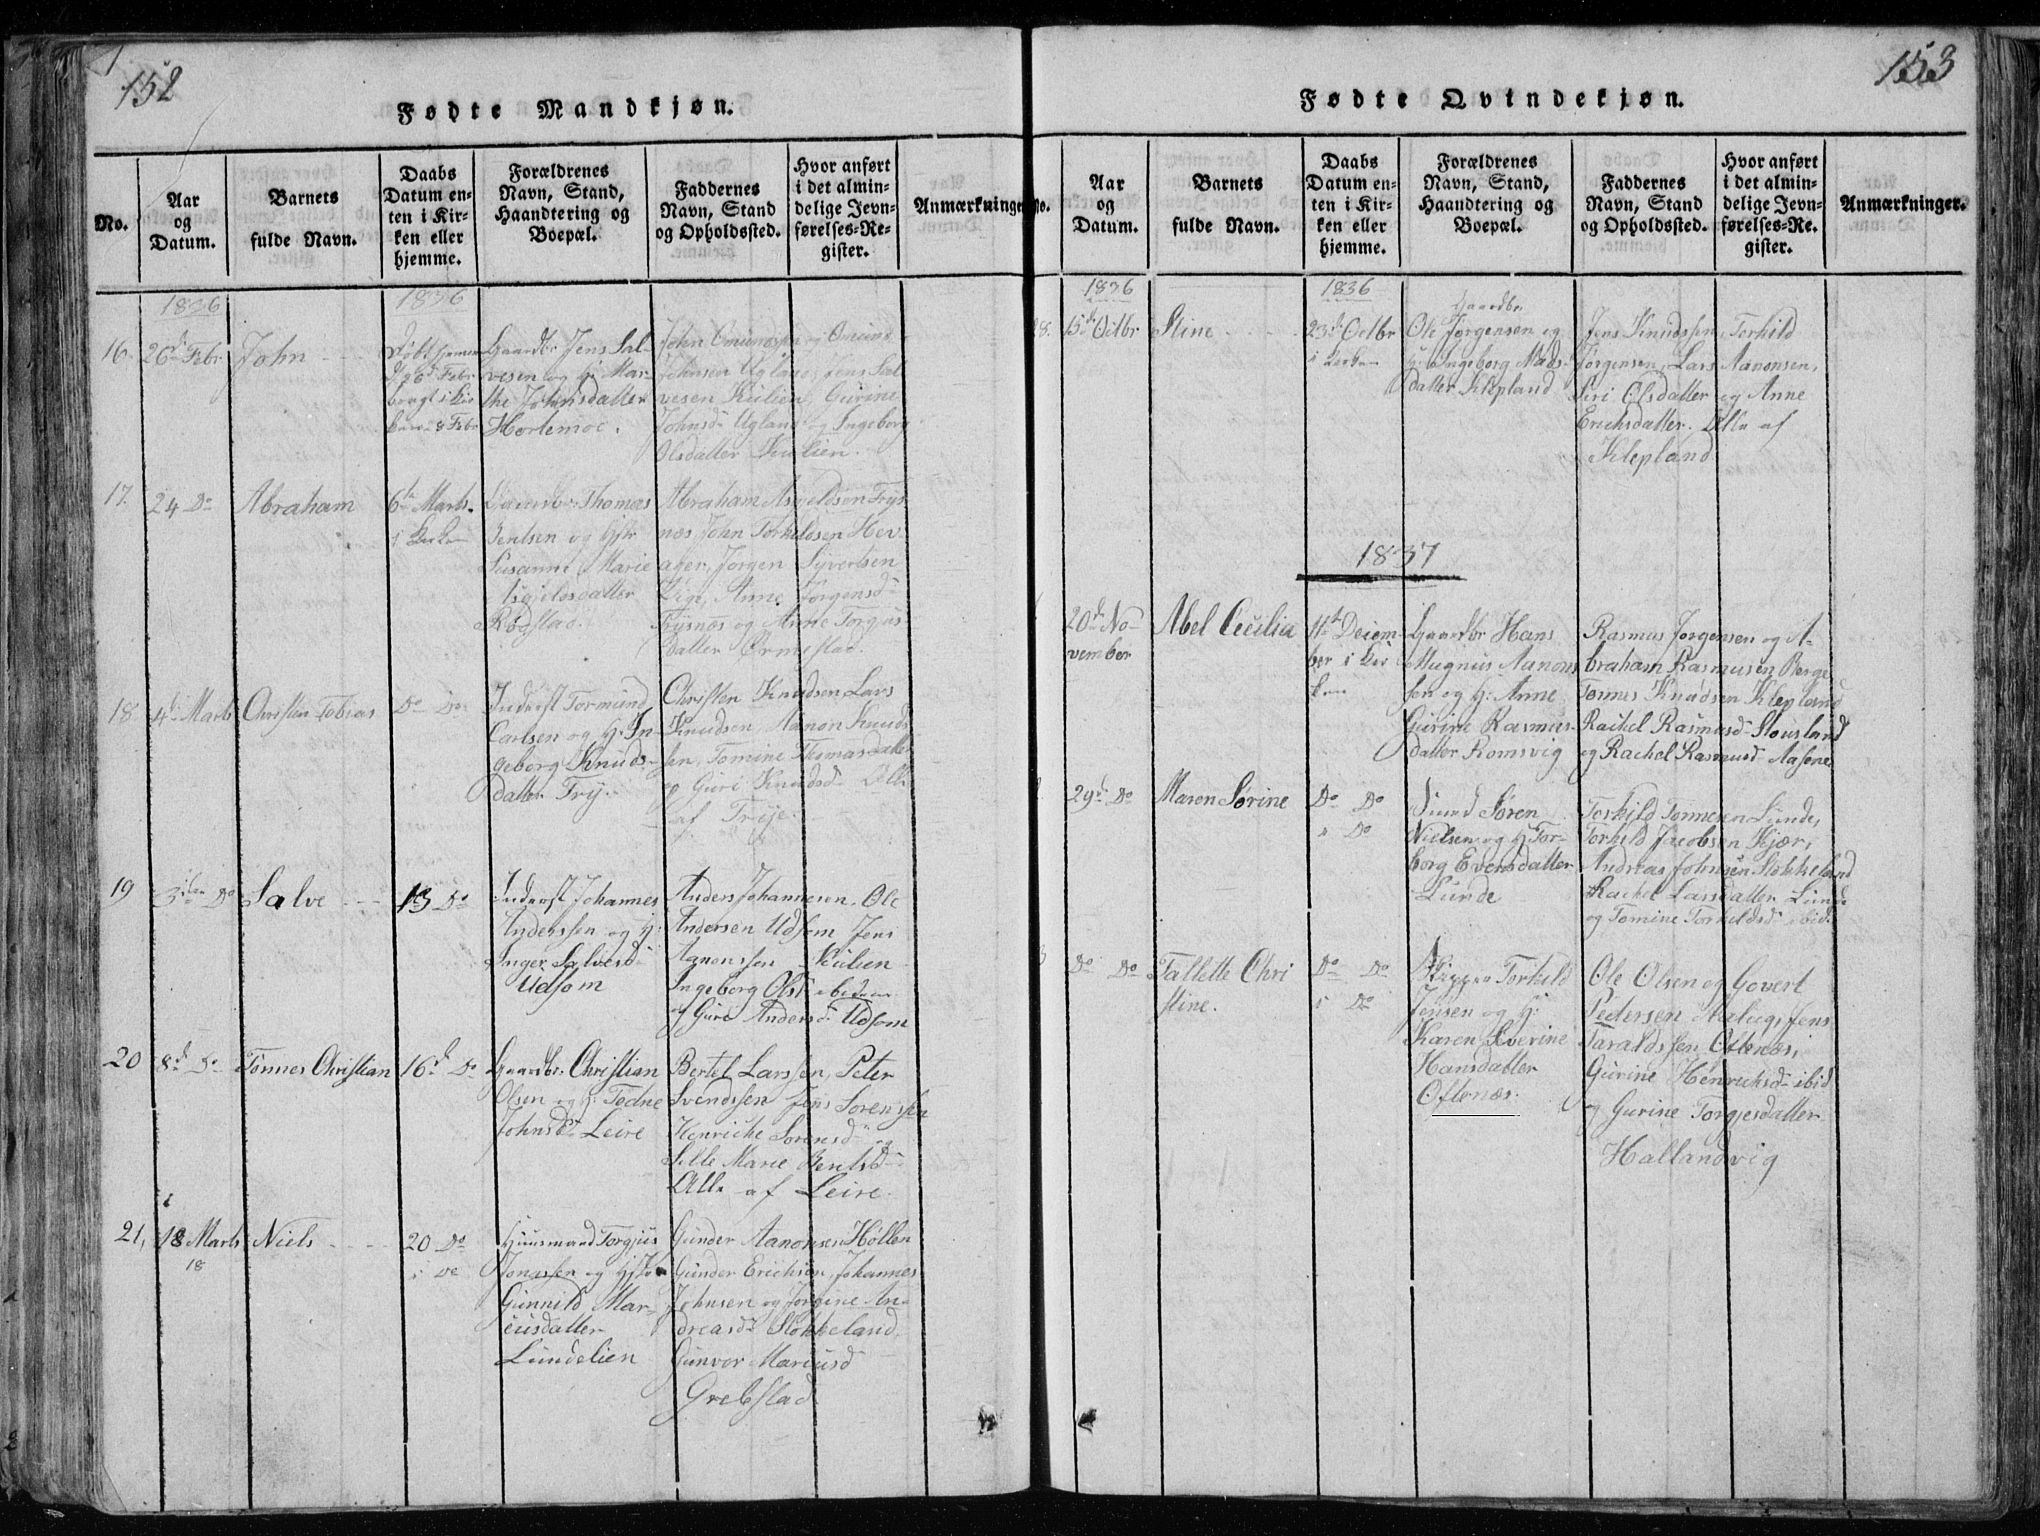 152
Fødte Mandkjøn.
No.
Aar
og
Datum.
Barnets
fulde Navn.
Daabs
Datum en-
ten i Kir-
ken eller
hjemme.
Forældrenes
Navn, Stand,
Haandtering og
Boepæl.
Faddernes
Navn, Stand
og Opholdssted.
Hvor anført
i det almin-
delige Jevn-
førelses-Re-
gister.
Anmærkninger
1836
1836
16.
26d Febr
John
Døbt hjemme
d. 26d Febr
Gaardbr. Jens Sal-
vesen og H: Mar-
the Johnsdatter
Hortemoe.
John Omundsen og Omund
Johnsen Ugland, Jens Sal-
vesen Kulien, Gurine
Johnsd. Ugland og Ingeborg
Olsdatter Kulien.
17.
24 Do
Abraham
6te Marts
i Kirken
Gaardbr. Thomas
Bentsen og Hstr
Susanne Marie
Rødstad.
Abraham Asgjeldsen Trys
næs, John Torkildsen Hev
ager, Jørgen Syvertsen
Vige, Anne Jørgensd
Trysnæs og Anne Torgius
datter Ormestad.
18.
4d Marts
Christen Tobias
Do Do
Inderst Tormund
Carlsen og H: In
geborg Knuds-
datter Try.
Christen Knudsen Lars
Knudsen, Aanon Knud-
sen, Tomine Thomasdatter
og Guri Knudsd. Alle
af Trye.
19
3die Do
Salve
13 Do
Inderst Johannes
Anderssen og H:
Inger Salvesd
Udsom
Anders Johannesen, Ole
Andersen Udsom Jens
Aanonssen Kulien
Ingeborg Olsd ibidem
og Guro Andersd Udsom
20
8d Do
Tønnes Christian
16d Do
Gaardbr. Christian
Olsen og H: Tedne
Johnsd Leire
Bertel Larssen, Peter
Svendssen Jens Sorenssen
Henriche Sorensd og
Sille Marie Bentsd
Alle af Leire.
21,
18 Marts
18
Niels
20 Do
i Do
Huusmand Torgjus
Jonassen og Hstr
Gunnild Mar-
cusdatter
Lundelien
Gunder Aanonsen Høllen
Gunder Erichsen, Johannes
Johnsen og Jorgine An-
dreasd Stokkeland,
Gunvor Marcusd
Grebstad.
153
Fødte Qvindekjøn.
No.
Aar
og
Datum.
Barnets
fulde Navn.
Daabs
Datum en-
ten i Kir-
ken eller
hjemme.
Forældrenes
Navn, Stand,
Haandtering og
Boepæl.
Faddernes
Navn, Stand
og Opholdssted.
Hvor anført
i det almin-
delige Jevn-
førelses-Re-
gister.
Anmærkninger.
1836
1836
28.
15d Octbr
Stine
23d Octbr
i Kirken
Gaardbr.
Ole Jørgensen og
H: Ingeborg Mads-
datter Klepland
Jens Knudssen, Torkild
Jørgensen, Lars Aanonsen,
Siri Olsdatter og Anne
Erichsdatter. Alle af
Klepland
1837
20d No-
vember
Abel Cecilia
11te Decem-
ber i Kir
ken
Gaardbr Hans
Magnus Aanons
sen og H: Anne
Gurine Rasmus-
datter Romsvig
Rasmus Jorgensen og A-
braham Rasmusen Berge
Tonnes Knudsen Klepland
Rachel Rasmusd Stousland
og Rachel Rasmusd Aasene
29d Do
Maren Sørine
Do Do
i Do
Søren
Nielsen og H: Tor-
borg Evensdatter
Lunde
Torkild Tonnesen Lunde,
Torkild Jacobsen Kjær,
Andreas Johnsen Stokkeland
Rachel Larsdatter Lunde
og Tomine Torkildsd ibid
3
Do Do
Tallette Chri
stine.
Do Do
i Do
Skipper Torkild
Jensen og H:
Karen Severine
Hansdatter
Oftenæs.
Ole Olsen og Govert
Pedersen Aalug, Jens
Taraldssen Oftenæs,
Gurine Henrichsd ibid
og Gurine Torgjesdatter
Hallandvig